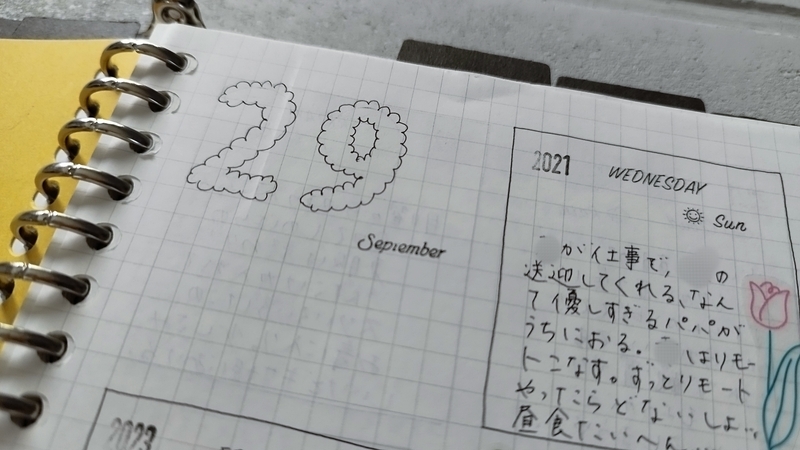 29
September
2021 WEDNESDAY
Sun
が仕事で、の
送迎してくれる、なん
て優しすぎるパパが
うちにおる。はリモー
トこなす。ずっとリモート
やったらどないしよ…
昼食たいへん
2023